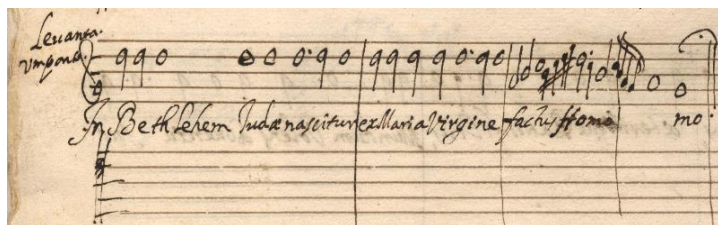 Levanta.
Vm ponto.
In Bethlehem Judæ nascitur ex Maria Virgine factus Homo mo.